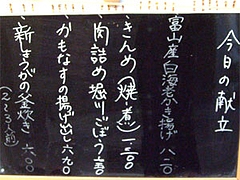 今日の献立
富山産白海老かき揚げ 八二〇
きんめ(焼・煮) 一二三〇
肉詰め堀川ごぼう 一一三〇
かもなすの揚げ出し 六九〇
新しょうがの釜炊き 六八〇
(二~三人前)